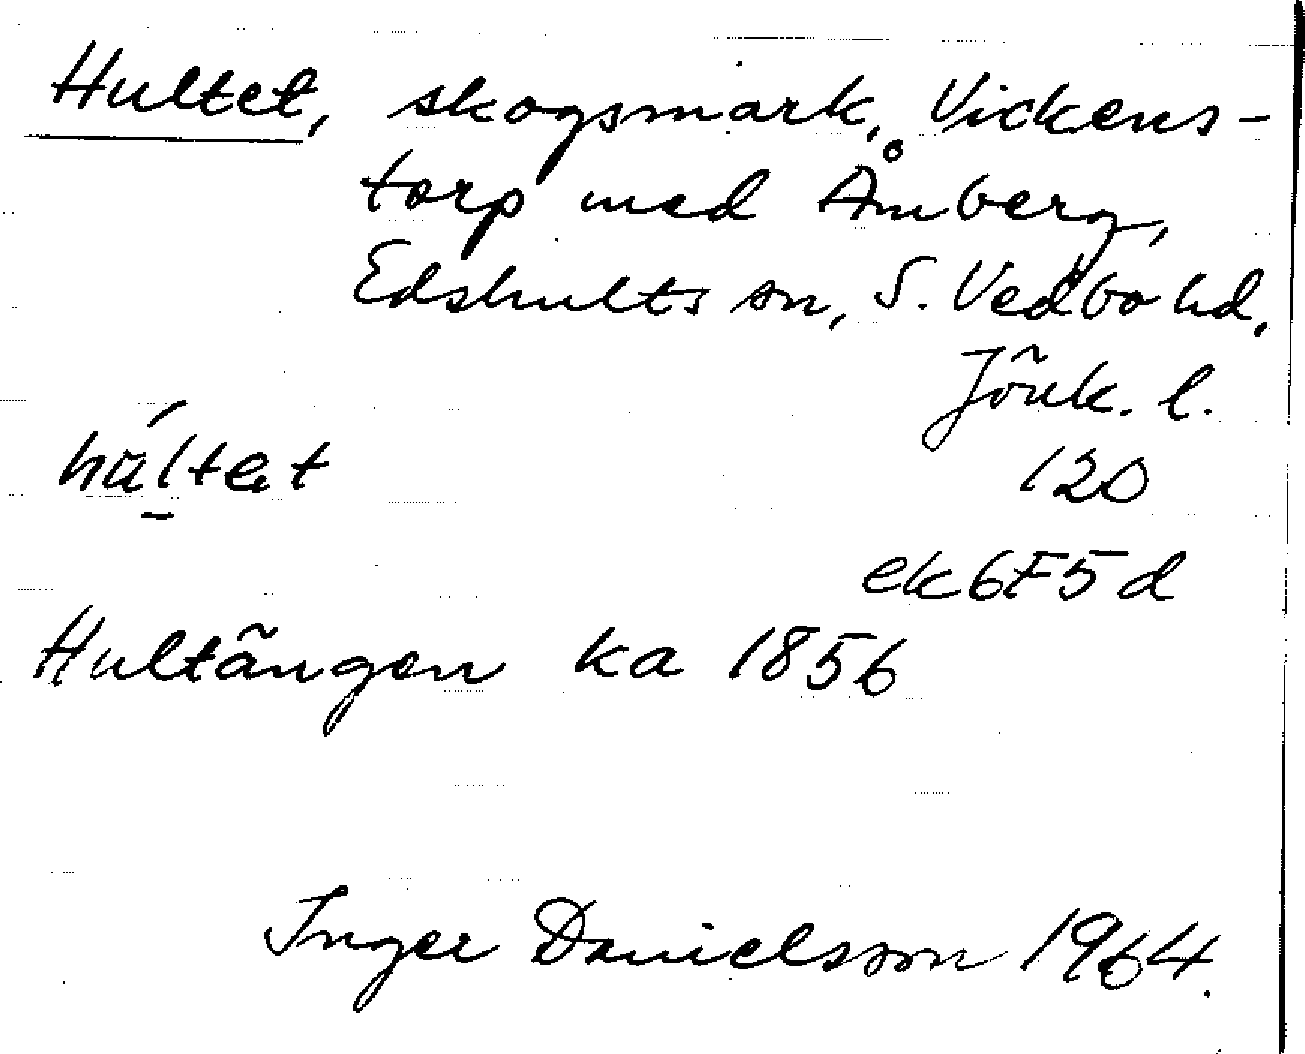 Hultet, skogsmark, Vickens-
torp med Åmberg,
Edshults sn, S. Vedbo hd,
Jönk. l.
120
ek6F5d
Hultängen ka 1856
Inger Danielsson 1964.